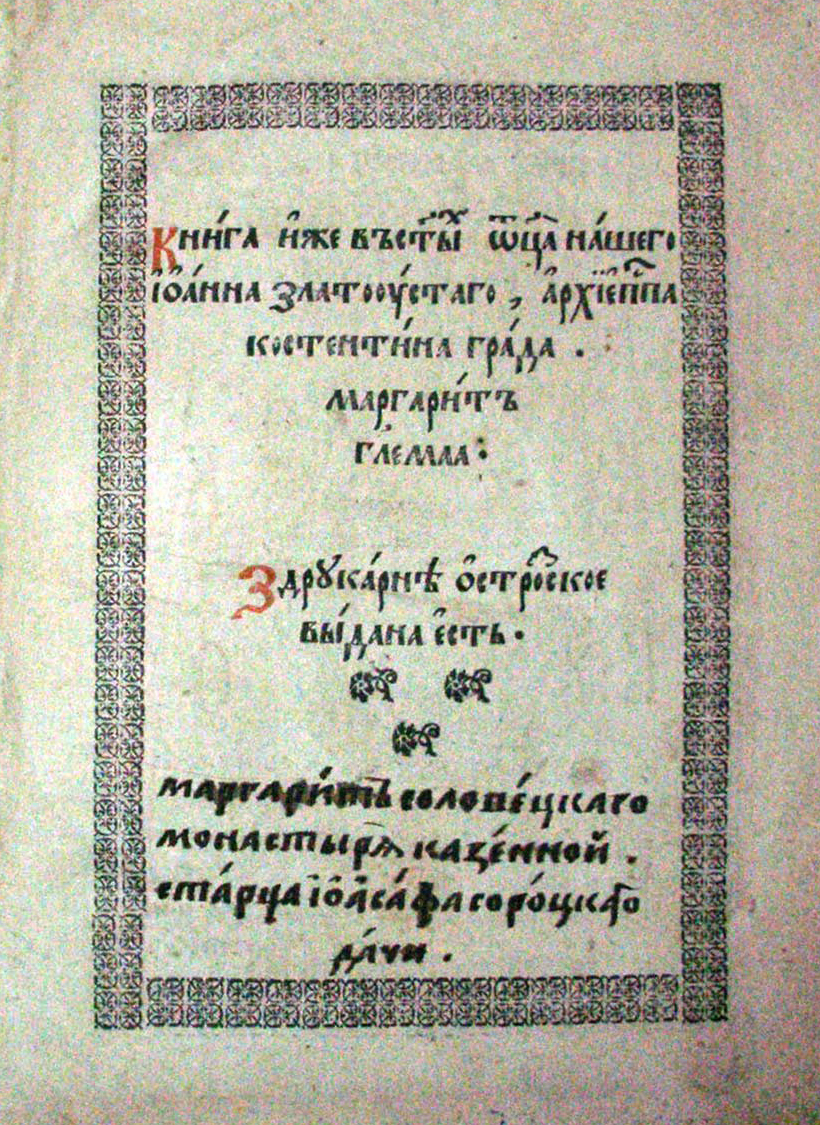 Кни́га и҆́же въ ст҃ы́хъ ѿц҃а на́шего
і҆ѡа́нна Златооу́стаго , а҆рхїепⷭ҇па
костенти́на гра́да .
маргари́тъ
гл҃емаа :
З друка́рнѣ ѻ҆стро́зское
вы́дана е҆сть .
маргари́тъ солове́цкаго
монастырѧ̀ казе́нной .
ста́рца і҆ѡ҆аса́фа соро́цкаго
да́чи .